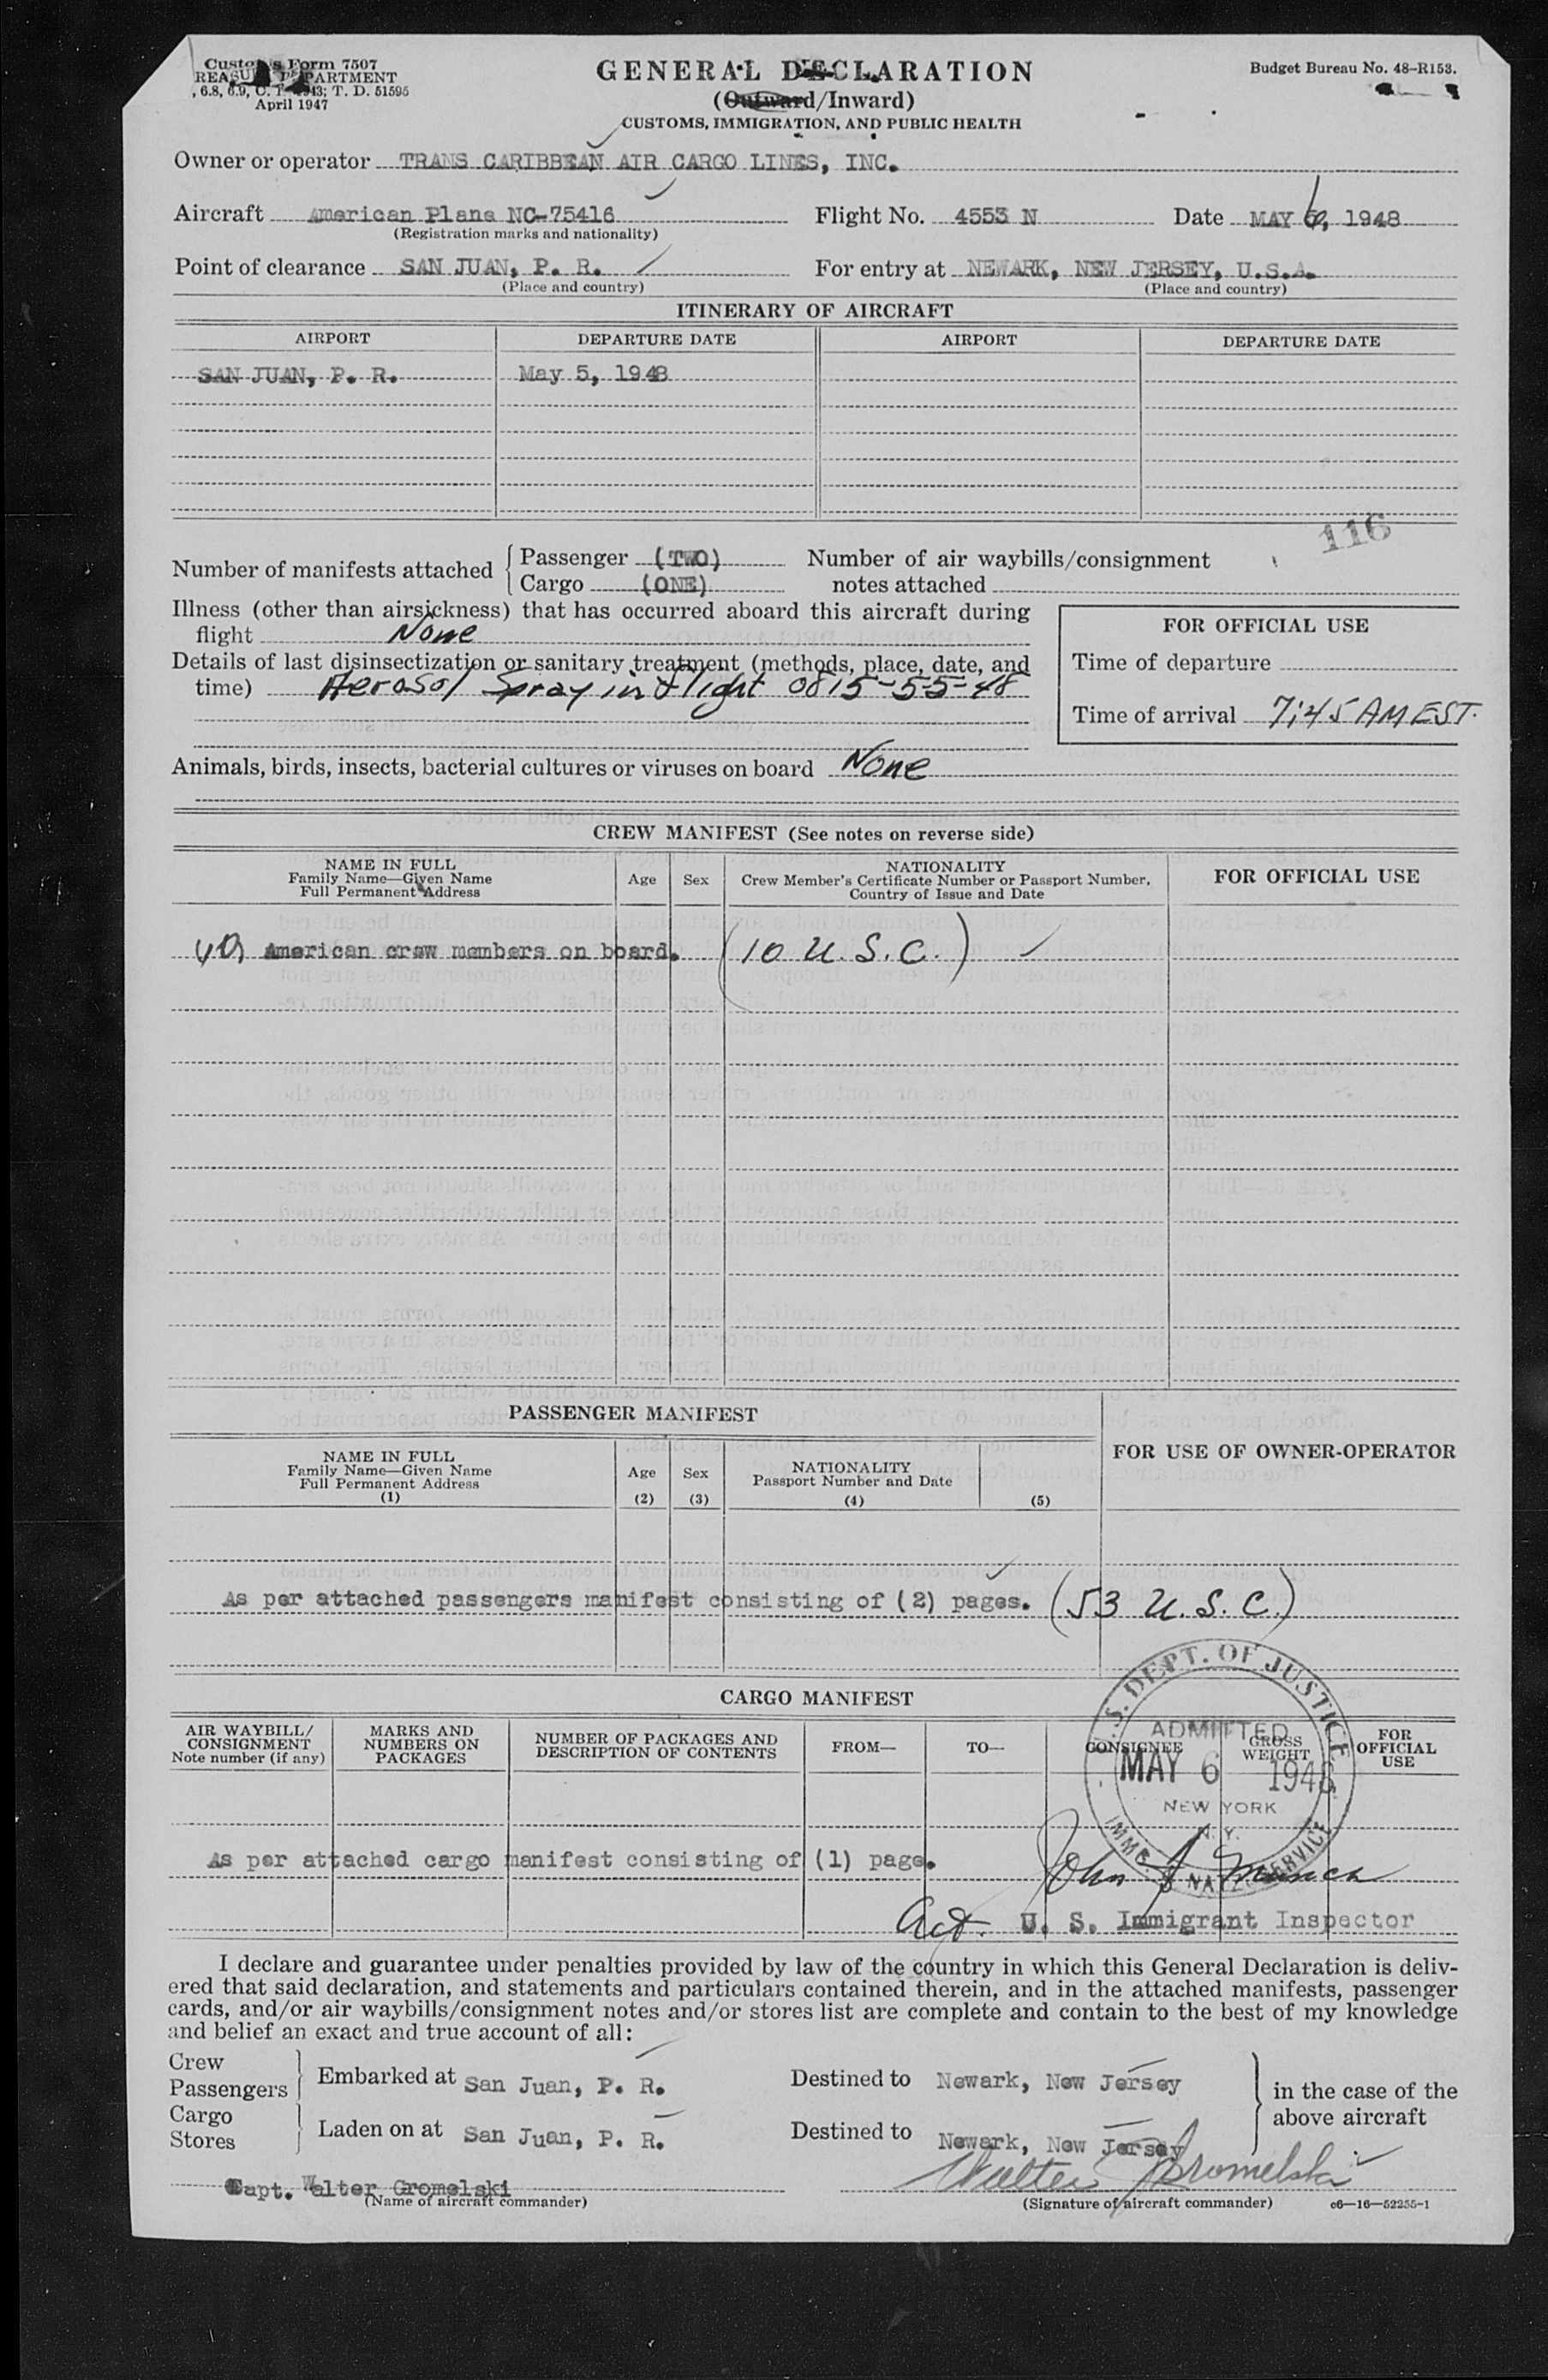 Customs Form 7507
GENERAL DECLARATION
Budget Bureau No. 48-R153.
DEPARTMENT
6.8, 6.9, 43; T. D. 51595
April 1947
(Outward/Inward)
CUSTOMS, IMMIGRATION, AND PUBLIC HEALTH
Owner or operator TRANS CARIBBEAN AIR CARGO LINES, INC.
Aircraft American Plane NC-75416 Flight No. 4553 N Date MAY 6, 1948
(Registration marks and nationality)
Point of clearance SAN JUAN, P. R. For entry at NEWARK, NEW JERSEY, U.S.A.
(Place and country) (Place and country)
ITINERARY OF AIRCRAFT
AIRPORT DEPARTURE DATE AIRPORT DEPARTURE DATE
SAN JUAN, P. R. May 5, 1948
116
Number of manifests attached Passenger (TWO) Number of air waybills/consignment
Cargo (ONE) notes attached
Illness (other than airsickness) that has occurred aboard this aircraft during
flight None
FOR OFFICIAL USE
Details of last disinsectization or sanitary treatment (methods, place, date, and
Time of departure
time) Aerosol Spray in flight 0815-5-5-48
Time of arrival 7:45 AM EST.
Animals, birds, insects, bacterial cultures or viruses on board None
CREW MANIFEST (See notes on reverse side)
NAME IN FULL
Family Name—Given Name
Full Permanent Address
Age Sex
NATIONALITY
Crew Member's Certificate Number or Passport Number,
Country of Issue and Date
FOR OFFICIAL USE
(10) American crew members on board. (10 U. S. C.)
PASSENGER MANIFEST
FOR USE OF OWNER-OPERATOR
NAME IN FULL
Family Name—Given Name
Full Permanent Address
(1)
Age
(2)
Sex
(3)
NATIONALITY
Passport Number and Date
(4)
(5)
As per attached passengers manifest consisting of (2) pages. (53 U. S. C.)
CARGO MANIFEST
AIR WAYBILL/
CONSIGNMENT
Note number (if any)
MARKS AND
NUMBERS ON
PACKAGES
NUMBER OF PACKAGES AND
DESCRIPTION OF CONTENTS
FROM—
TO—
CONSIGNEE
GROSS
WEIGHT
FOR
OFFICIAL
USE
U.S. DEPT. OF JUSTICE
ADMITTED
MAY 6 1948
NEW YORK
N.Y.
IMMG. & NATZ. SERVICE
As per attached cargo manifest consisting of (1) page.
John J.
Act. U. S. Immigrant Inspector
I declare and guarantee under penalties provided by law of the country in which this General Declaration is deliv-
ered that said declaration, and statements and particulars contained therein, and in the attached manifests, passenger
cards, and/or air waybills/consignment notes and/or stores list are complete and contain to the best of my knowledge
and belief an exact and true account of all:
Crew
Passengers
Embarked at San Juan, P. R. Destined to Newark, New Jersey
Cargo
Stores
Laden on at San Juan, P. R. Destined to Newark, New Jersey
in the case of the
above aircraft
Capt. Walter Gromelski Walter Gromelski
(Name of aircraft commander) (Signature of aircraft commander) c6—16—52255-1